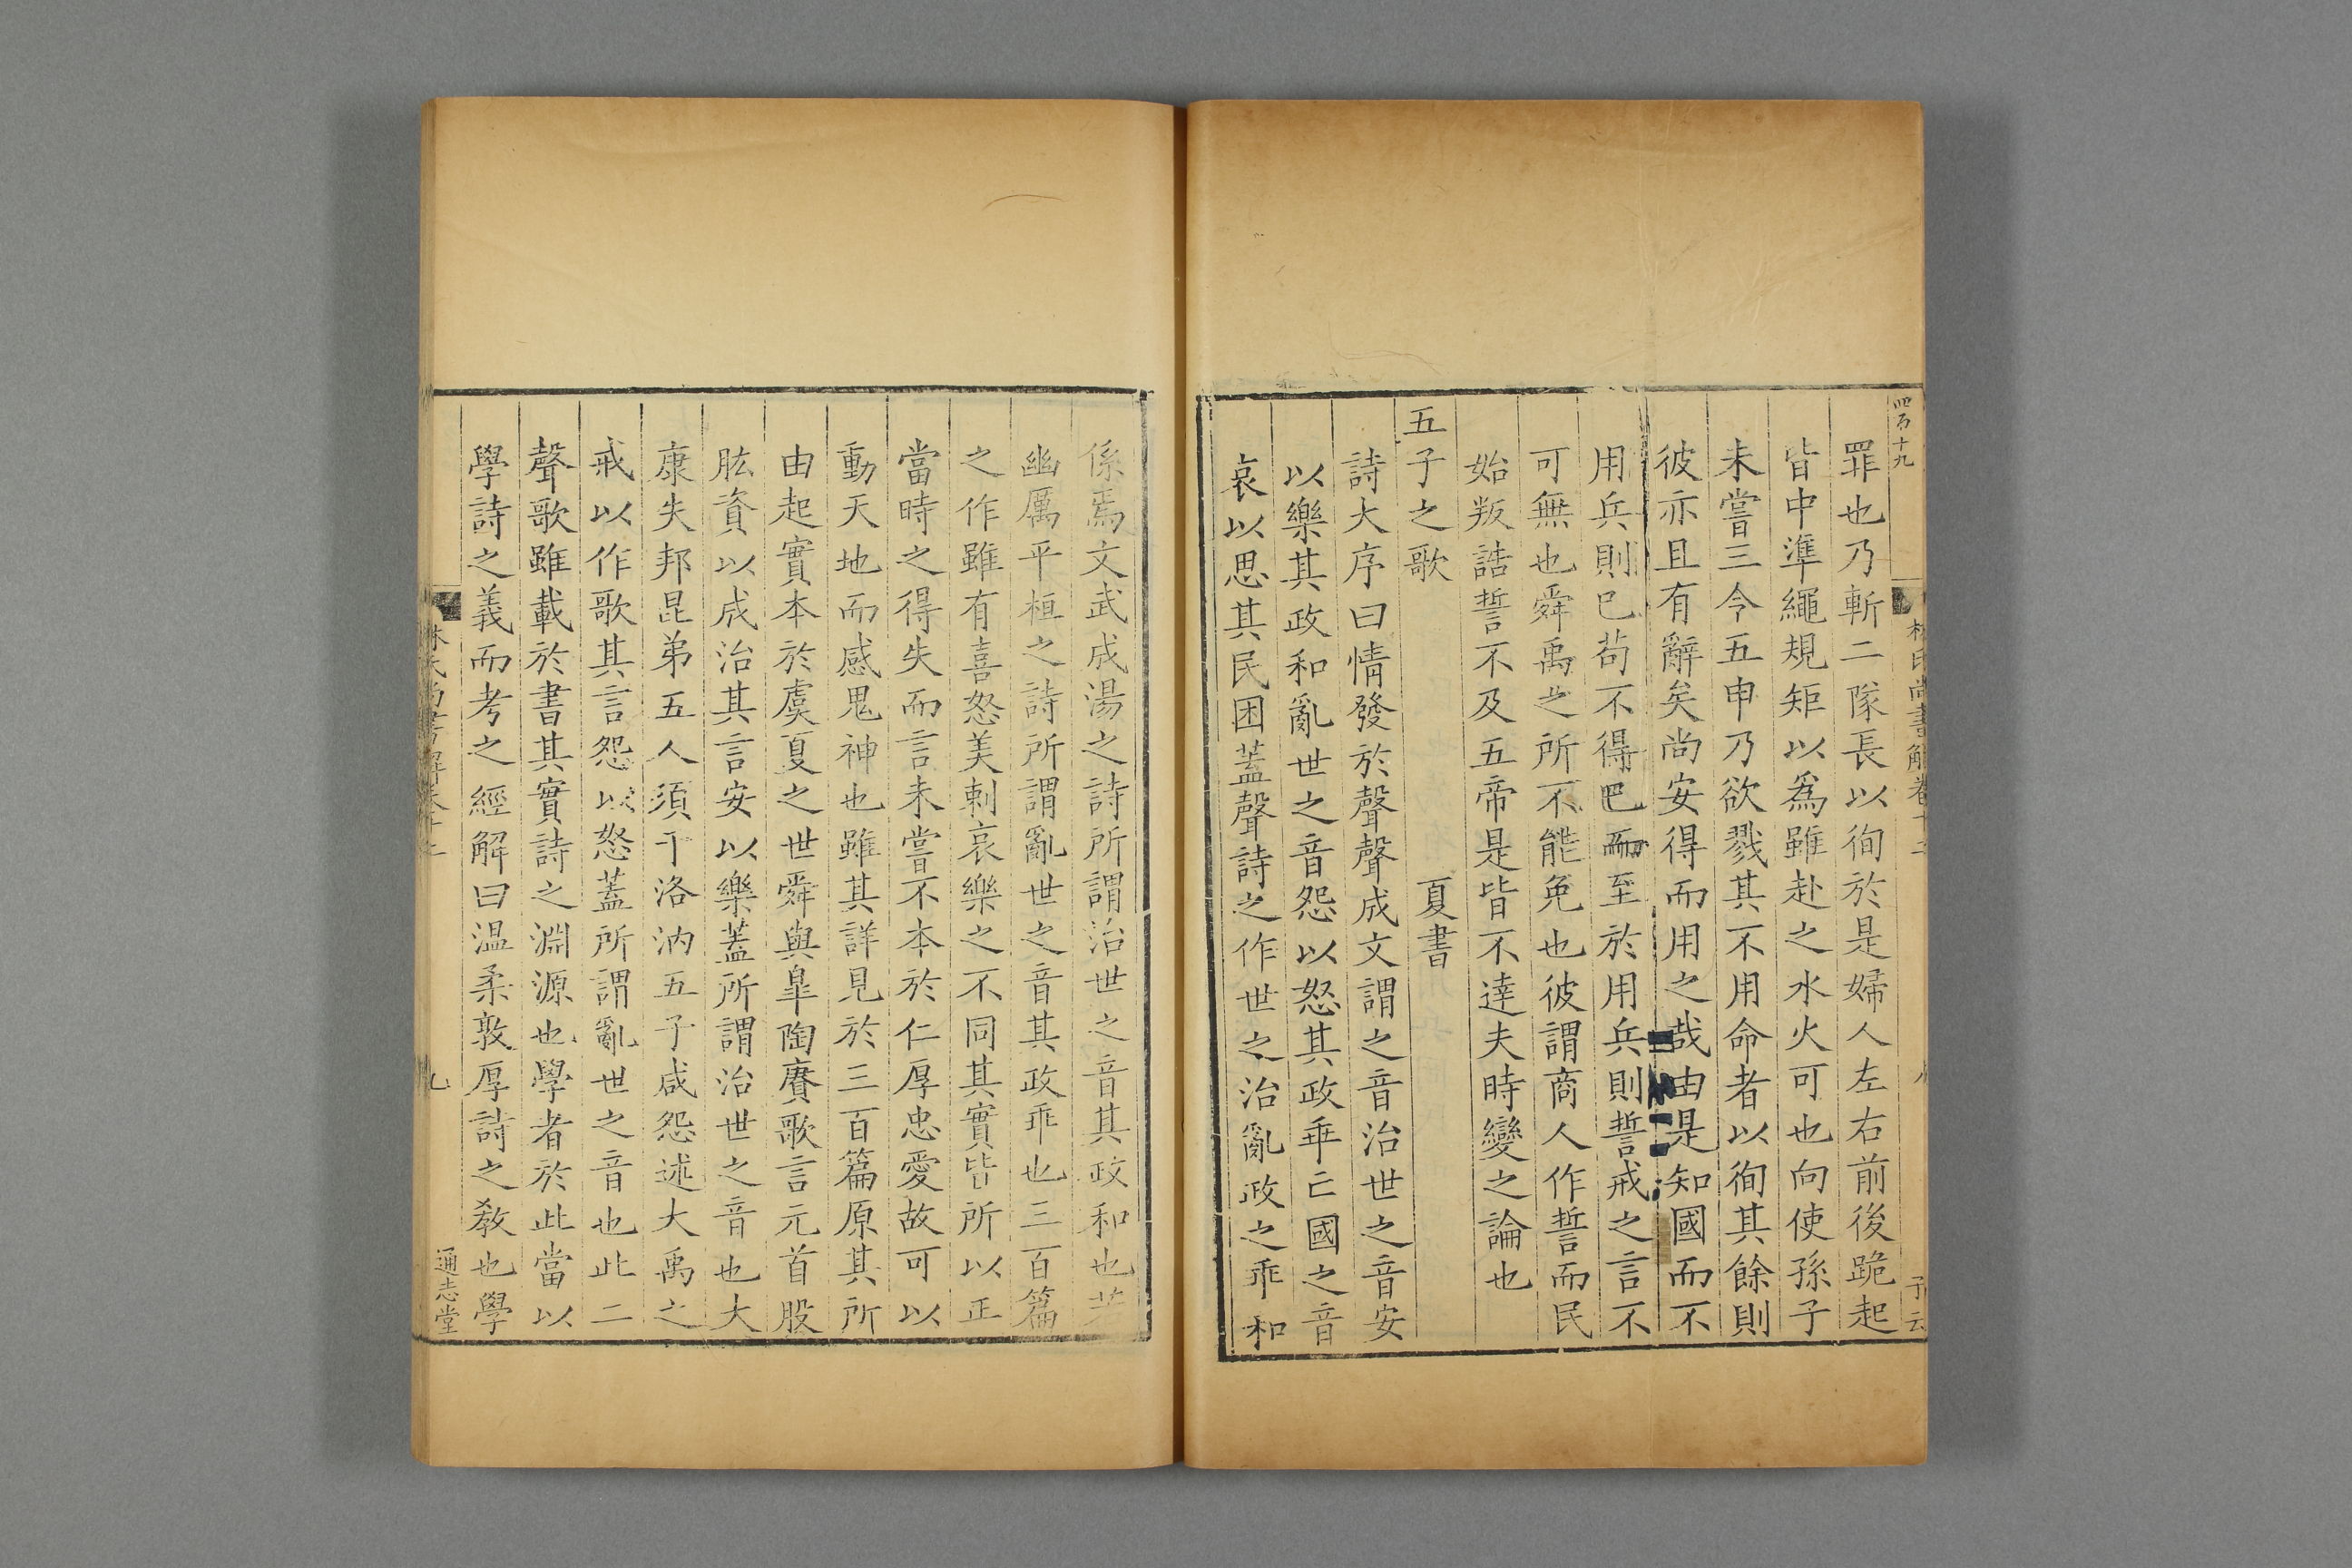 四百十九
林氏尚書解卷十二
罪也乃斬二隊長以徇於是婦人左右前後跪起
皆中準繩規矩以為雖赴之水火可也向使孫子
未嘗三令五申乃欲戮其不用命者以徇其餘則
彼亦且有辭矣尚安得而用之哉由是知國而不
用兵則已苟不得已而至於用兵則誓戒之言不
可無也舜禹之所不能免也彼謂商人作誓而民
始叛誥誓不及五帝是皆不達夫時變之論也
五子之歌 夏書
詩大序曰情發於聲聲成文謂之音治世之音安
以樂其政和亂世之音怨以怒其政乖亡國之音
哀以思其民困蓋聲詩之作世之治亂政之乖和
係焉文武成湯之詩所謂治世之音其政和也若
幽厲平桓之詩所謂亂世之音其政乖也三百篇
之作雖有喜怒美刺哀樂之不同其實皆所以正
當時之得失而言未嘗不本於仁厚忠愛故可以
動天地而感鬼神也雖其詳見於三百篇原其所
由起實本於虞夏之世舜與皐陶賡歌言元首股
肱資以成治其言安以樂蓋所謂治世之音也大
康失邦昆弟五人須于洛汭五子咸怨述大禹之
戒以作歌其言怨以怒蓋所謂亂世之音也此二
聲歌雖載於書其實詩之淵源也學者於此當以
學詩之義而考之經解曰温柔敦厚詩之教也學
林氏尚書解卷十二
九
通志堂